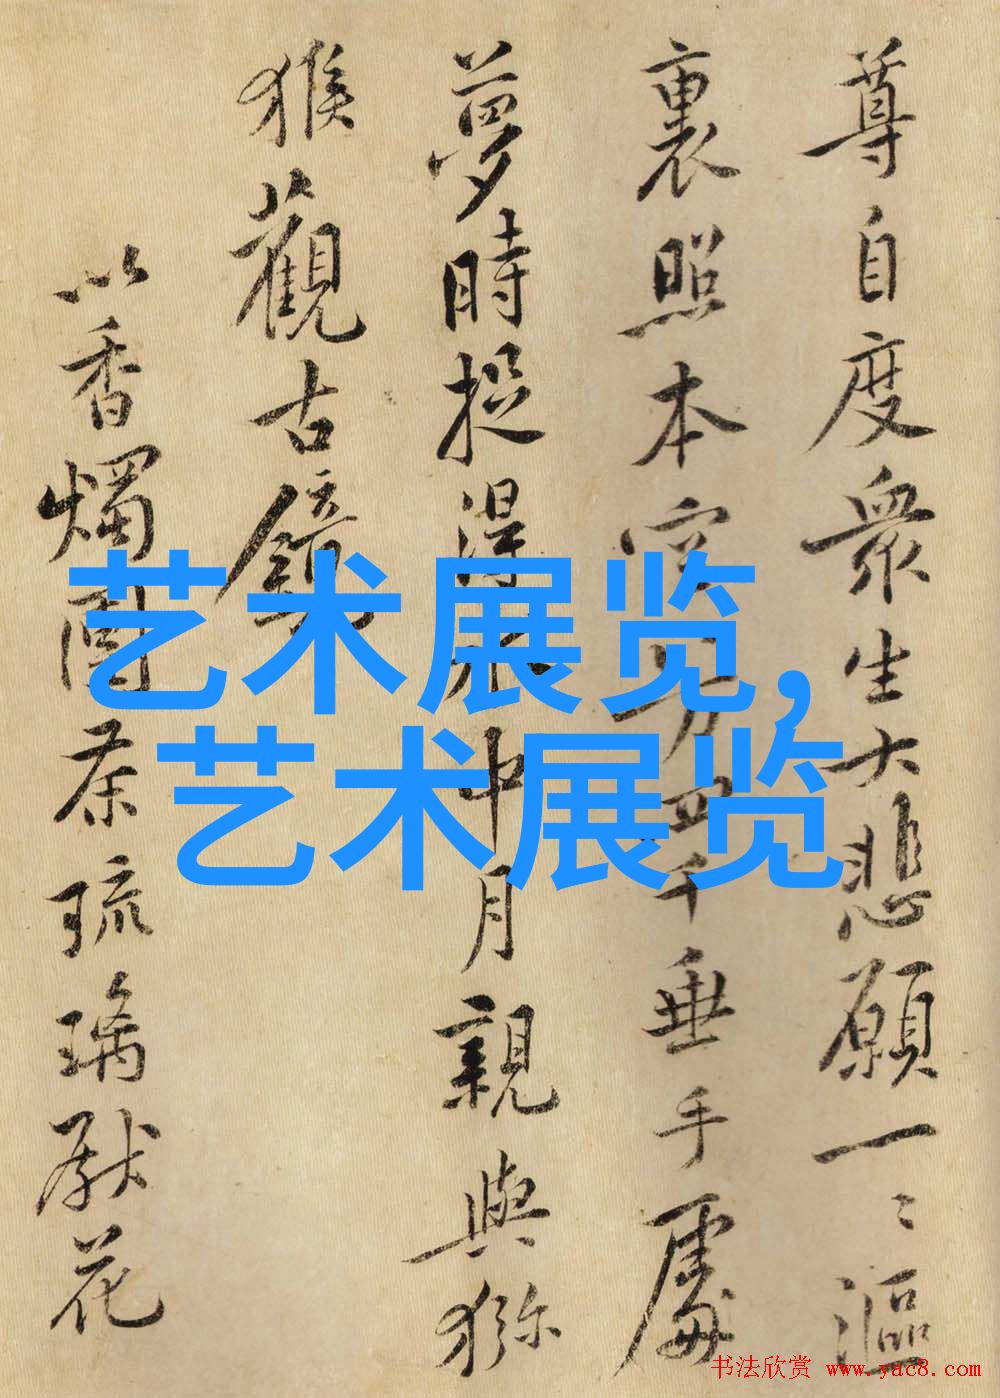 尊自度衆生大悲願一〻漚
裏照本空万四千垂手處
夢時捉得水中月親與猕
猴觀古鏡
以香燭團茶琉璃獻花
艺术展览,
艺术展览
书法欣赏 www.yac8.com